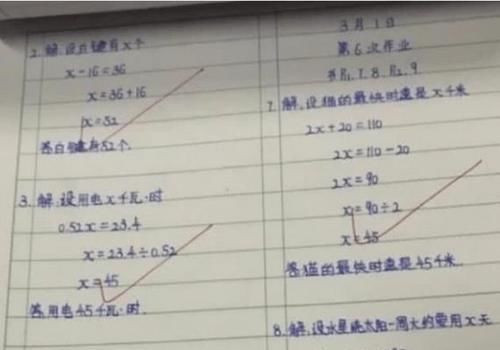 2. 解:设白键有x个
x-16=36
x=36+16
x=52
答白键有52个.
3. 解:设用电x千瓦·时
0.52x=23.4
x=23.4÷0.52
x=45
答用电45千瓦·时.
3月1日
第6次作业
书P11.7.8.P12.9
7. 解,设猫的最快时速是x千米
2x+20=110
2x=110-20
2x=90
x=90÷2
x=45
答猫的最快时速是45千米.
8.解,设水星绕太阳一周大约要用x天